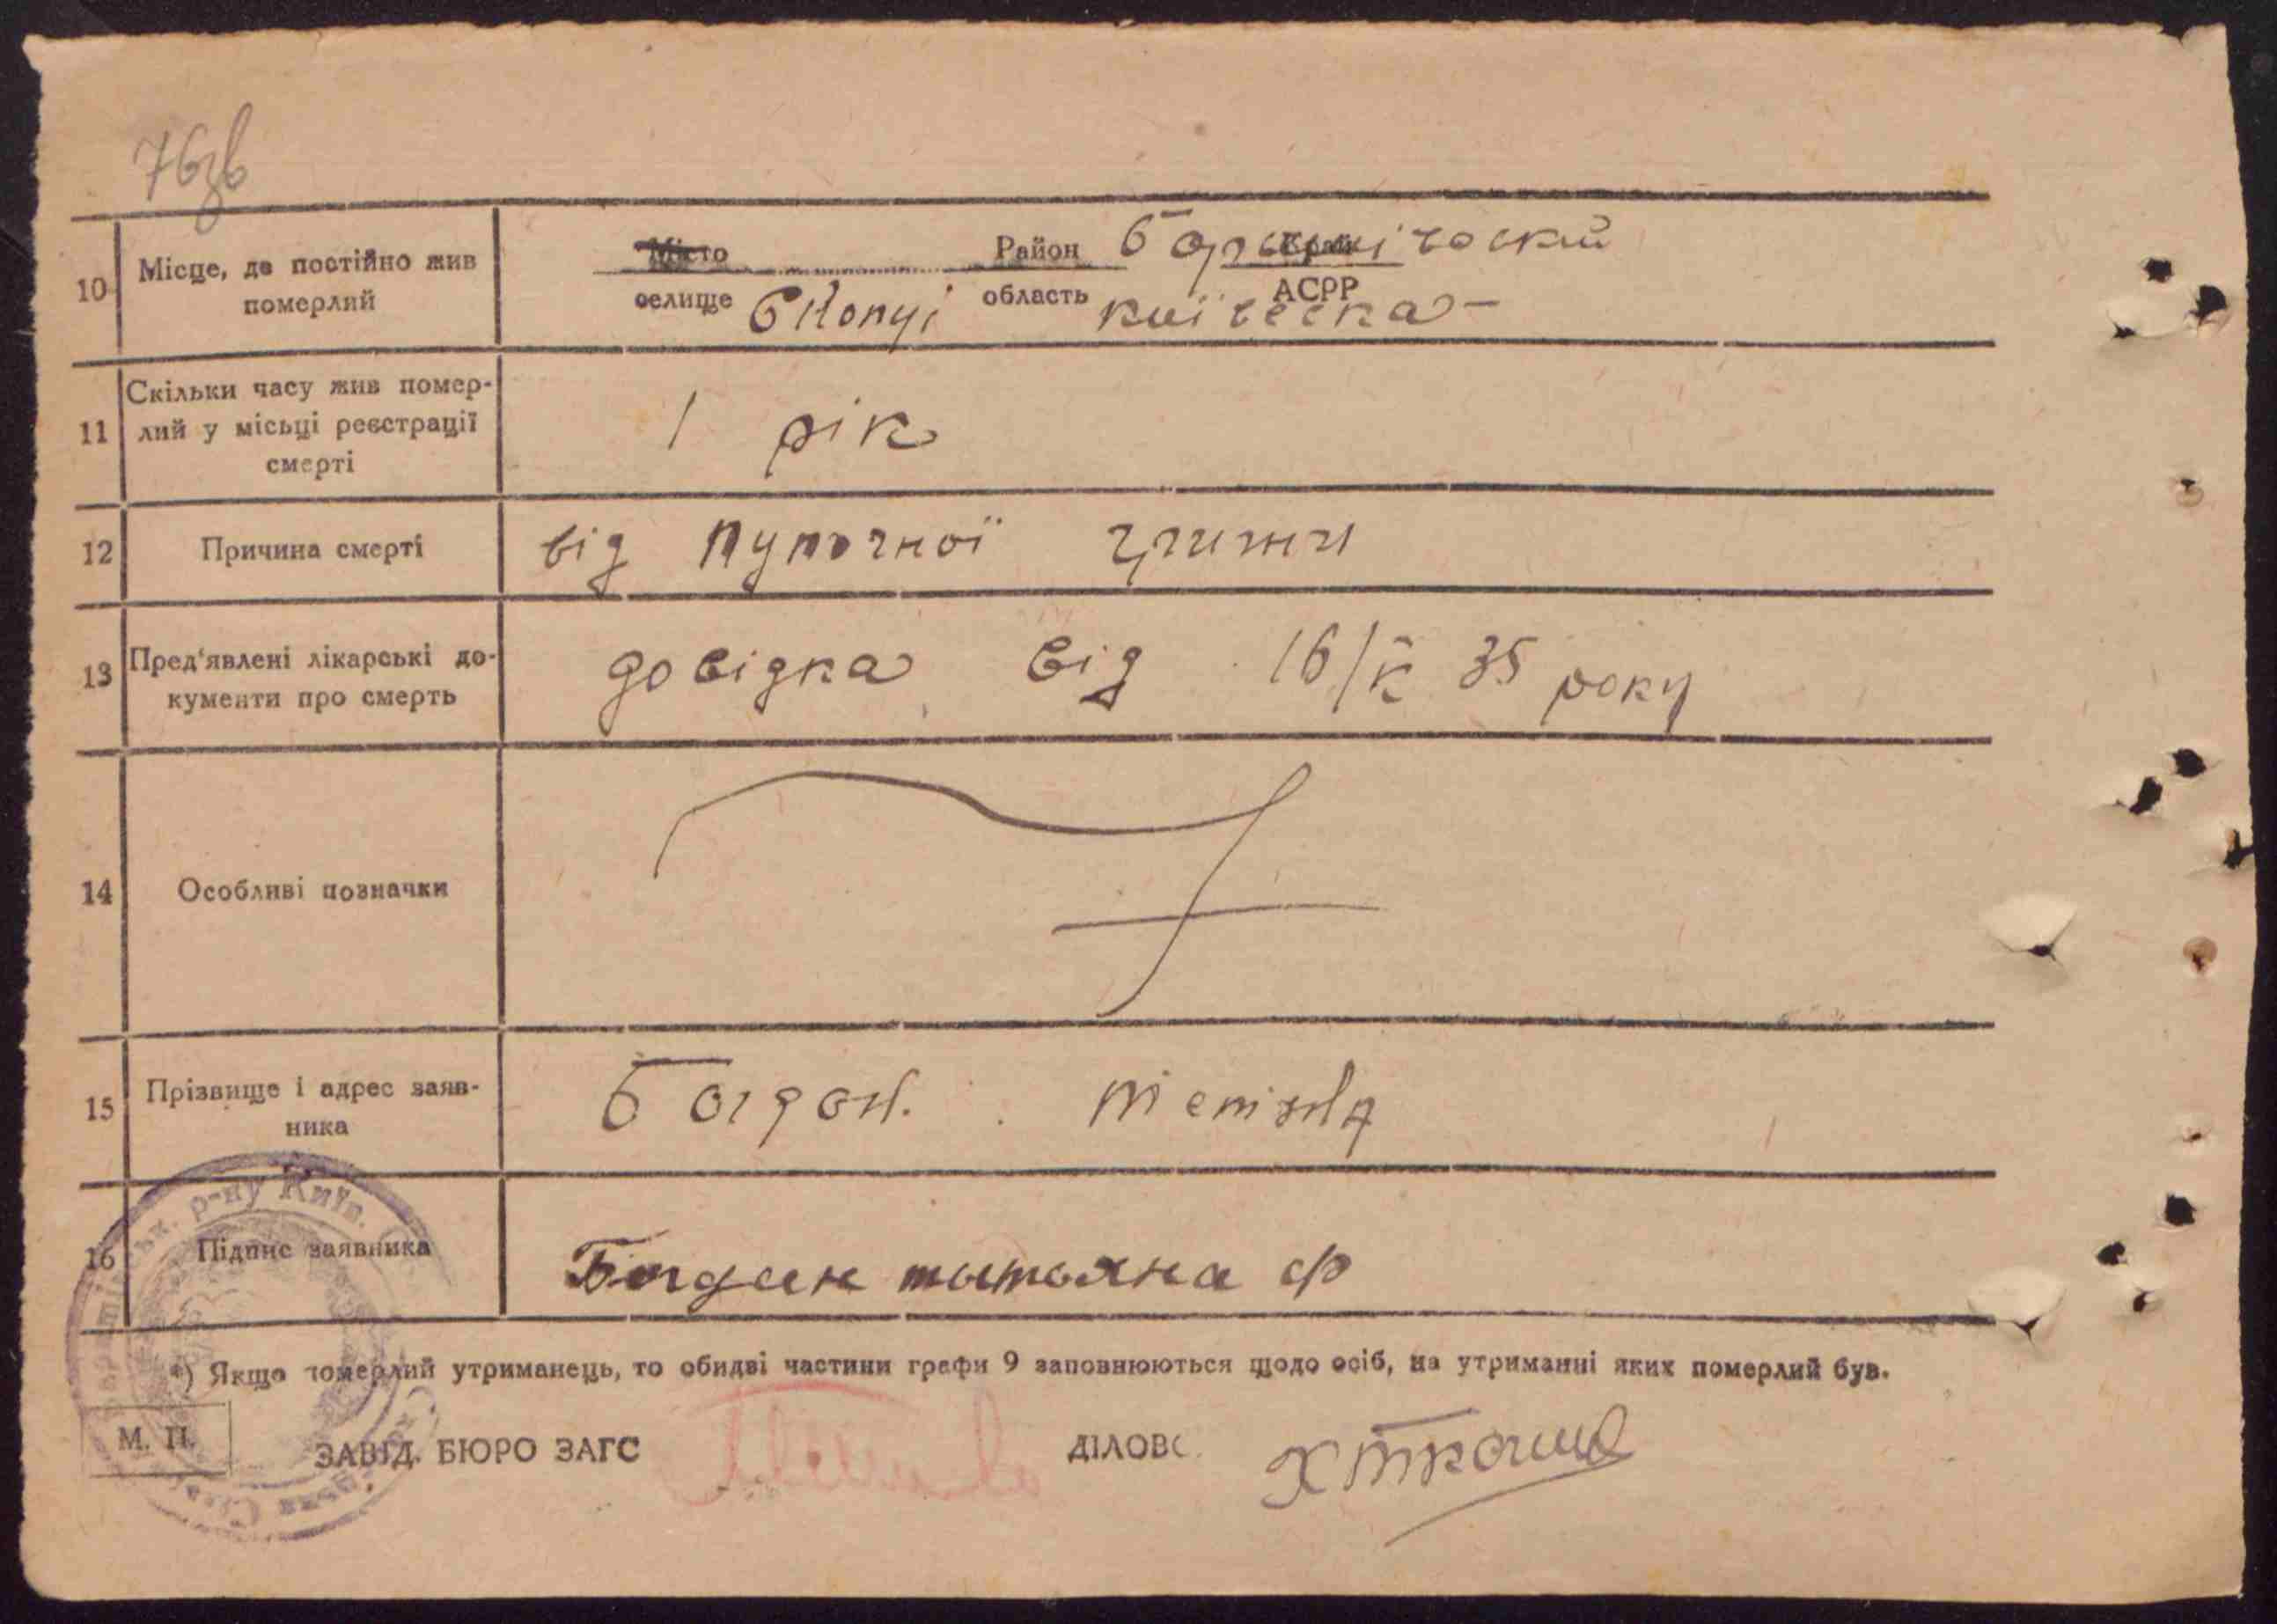 76зв
Місто Район Баришівський Край
10 Місце, де постійно жив померлий
селище область Київська АСРР
11 Скільки часу жив помер-
лий у місьці реєстрації
смерті
1 рік
12 Причина смерті
від пупочної грижи
13 Пред'явлені лікарські до-
кументи про смерть
довідка від 16/ 35 року
14 Особливі позначки
15 Прізвище і адрес заяв-
ника
Богдан
16 Підпис заявника
Богдан татьяна ф
р-ну Київ.
*) Якщо померлий утриманець, то обидві частини графи 9 заповнюються щодо осіб, на утриманні яких померлий був.
М. П.
ЗАВІД. БЮРО ЗАГС ДІЛОВ